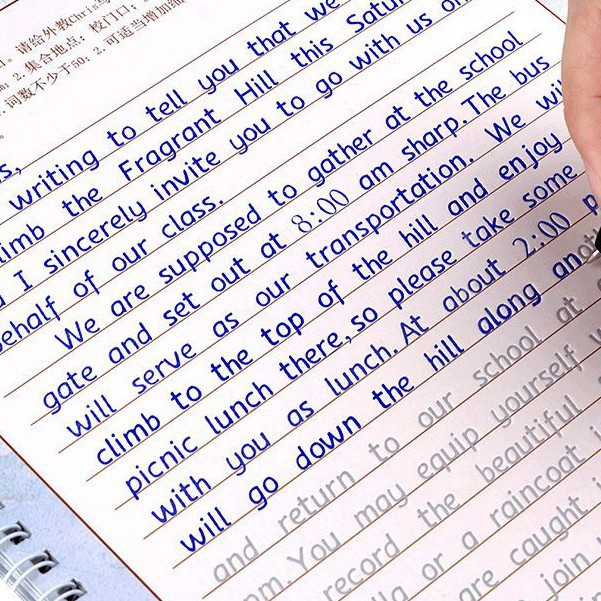 请给外教Chris
2.集合地点：校门口；
词数不少于50；2.可适当增加细
writing to tell you that we
climb the Fragrant Hill this Satur
I sincerely invite you to go with us on
behalf of our class.
We are supposed to gather at the school
gate and set out at 8:00 am sharp. The bus
will serve as our transportation. We will
climb to the top of the hill and enjoy
picnic lunch there, so please take some
with you as lunch. At about 2:00 p
will go down the hill along ano
and return to our school at
pm. You may equip yourself w
record the beautiful
or a raincoat i
are caught i
join